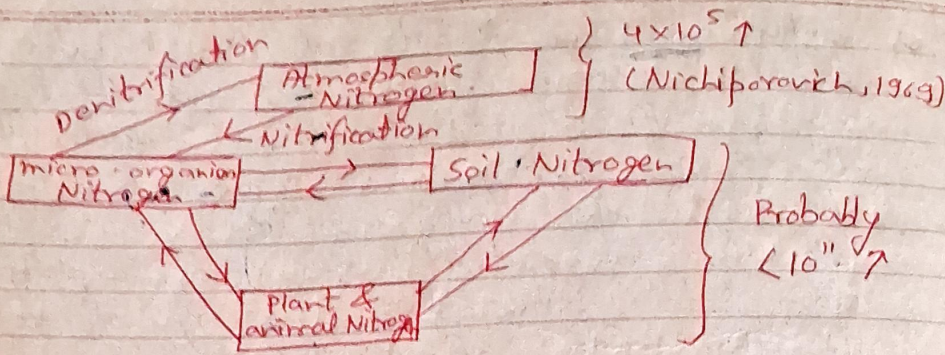 Denitrification
Atmospheric
Nitrogen
4×10⁵ ↑
(Nichiporovich, 1969)
Nitrification
micro organion
Nitrogen
Soil Nitrogen
Probably
<10" ↗
Plant &
animal Nitrogen